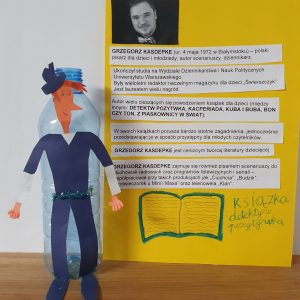 GRZEGORZ KASDEPKE (ur. 4 maja 1972 w Białymstoku) – polski
pisarz dla dzieci i młodzieży, autor scenariuszy, dziennikarz.
Ukończył studia na Wydziale Dziennikarstwa i Nauk Politycznych
Uniwersytetu Warszawskiego
Były wieloletni redaktor naczelny magazynu dla dzieci „Świerszczyk"
Jest laureatem wielu nagród
Autor wielu cieszących się powodzeniem książek dla dzieci (między
innymi: DETEKTYW POZYTYWKA, KACPERIADA, KUBA I BUBA, BON
CZY TON, Z PIASKOWNICY W ŚWIAT).
W swoich książkach porusza bardzo istotne zagadnienia, jednocześnie
przedstawiając je w sposób przystępny dla młodych czytelników
GRZEGORZ KASDEPKE jest cenionym twórcą literatury dziecięcej
GRZEGORZ KASDEPKE zajmuje się również pisaniem scenariuszy do
słuchowisk radiowych oraz programów telewizyjnych i seriali –
współpracował przy takich produkcjach jak „Ciuchcia", „Budzik",
„Podwieczorek u Mini i Maxa" oraz telenowela „Klan".
KSIĄŻKA
detektyw
pozytywka